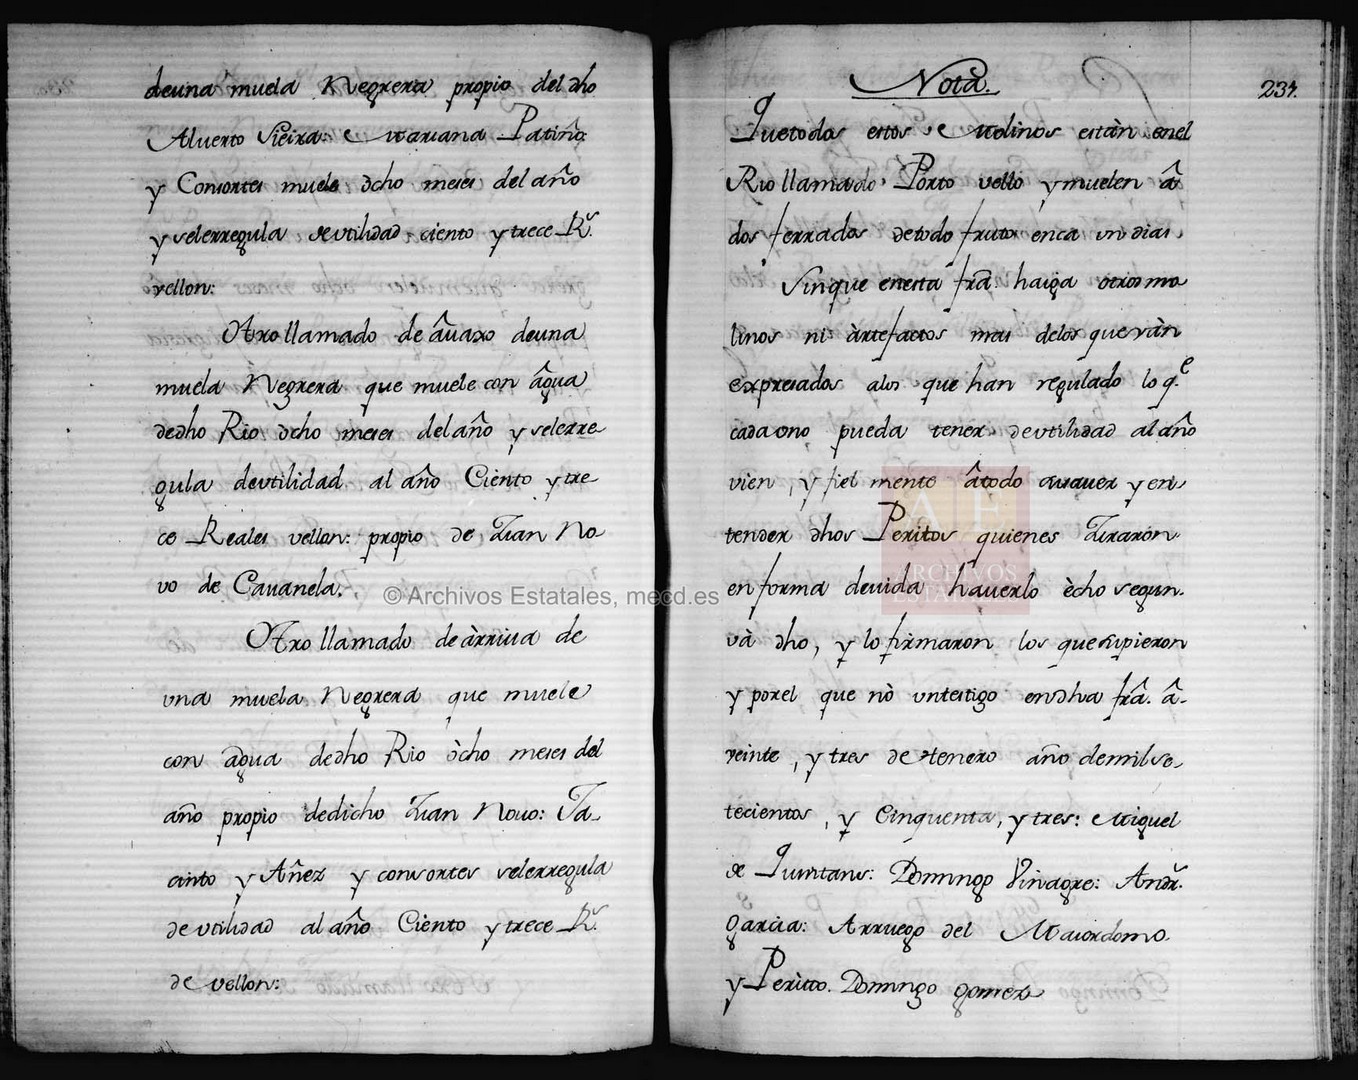 deuna muela Negrera propio del dho
Alverto Vieira: Mariana Patiño
y Consortes muele ôcho meses del año
y selerregula deutilidad ciento y trece R.s
vellon:
Otro llamado de âuaxo deuna
muela Negrera que muele con âgua
dedho Rio ôcho meses del año y selerre
gula deutilidad al año Ciento y tre
ce Reales vellon: propio de Juan No
vo de Cauanela.
Otro llamado de àrriua de
una muela Negrera que muele
con agua dedho Rio ôcho meses del
año propio dedicho Juan Nouo: Ja
cinto y Añez y consortes selerregula
de utilidad al año Ciento y trece R.s
de vellon:
Nota.
237.
Quetodos estos Molinos están enel
Rio llamado Porto vello y muelen â
dos ferrados detodo fruto en ca un dia
Sinque enesta frâ. haiga otros mo
linos ni àrtefactos mas delos que ván
expresados alos que han regulado lo q.e
cada uno pueda tener deutilidad al año
vien, y fiel mente âtodo su saver y en
tender dhos Peritos quienes Juraron
en forma devida hauerlo êcho segun
vá dho, y lo firmaron los que supieron
y porel que nó un testigo en dha frâ. â
veinte, y tres de Henero año demil se
tecientos, y Cinquenta, y tres: Miguel
de Quintans: Domingo Vinagre: Andr.s
Garcia: Arruego del Maiordomo
y Perito. Domingo Gomez
© Archivos Estatales, mecd.es
AE
ARCHIVOS
ESTATALES